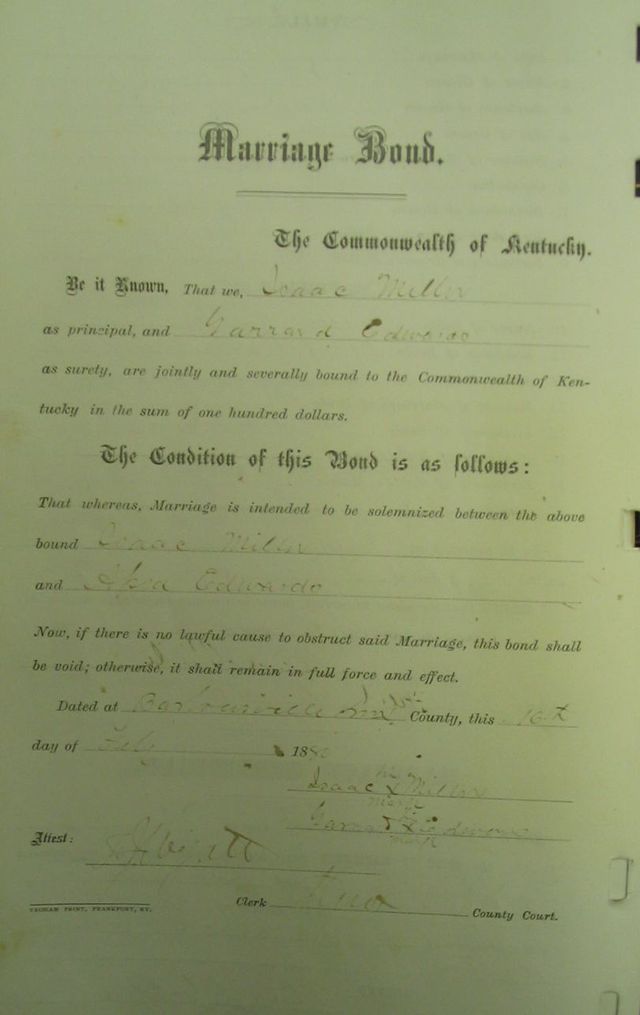 Marriage Bond.
The Commonwealth of Kentucky.
Be it Known, That we, Isaac Miller
as principal, and Garrard Edwards
as surety, are jointly and severally bound to the Commonwealth of Ken-
tucky in the sum of one hundred dollars.
The Condition of this Bond is as follows:
That whereas, Marriage is intended to be solemnized between the above
bound Isaac Miller
and Edwards
Now, if there is no lawful cause to obstruct said Marriage, this bond shall
be void; otherwise, it shall remain in full force and effect.
Dated at Barbourville Knox County, this 16th
day of 188
Isaac X Miller
mark
Garrard X Edwards
mark
Attest:
Clerk Knox County Court.
YEOMAN PRINT, FRANKFORT, KY.